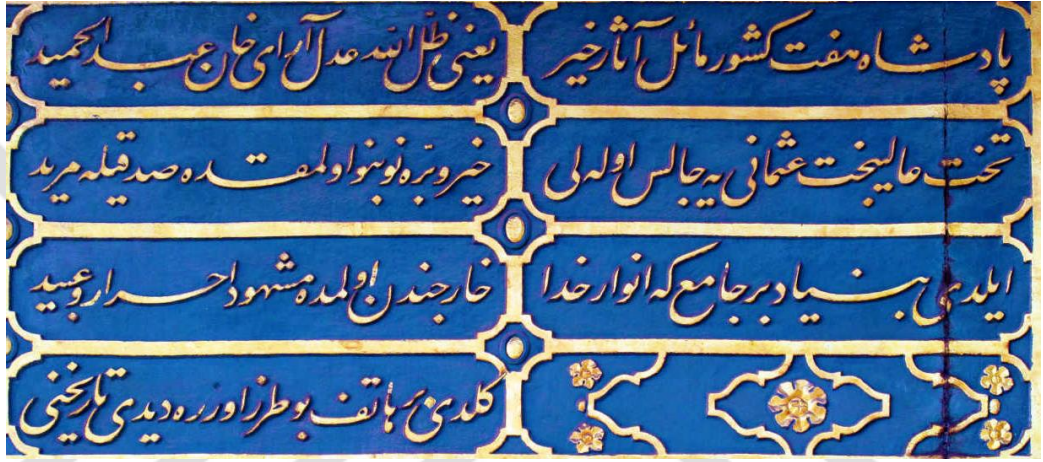 پادشاه هفت كشور مائل آثار خير
يعنى ظل الله عدل آراى خان عبد الحميد
تخت عاليبخت عثمانى يه جالس اوله لى
خير و بره نوبنو اولمقده صدقيله مريد
ايلدى بنياد بر جامع كه انوار خدا
خارجندن اولمده مشهود احرار و عبيد
كلدى بر هاتف بو طرز اوزره ديدى تاريخنى